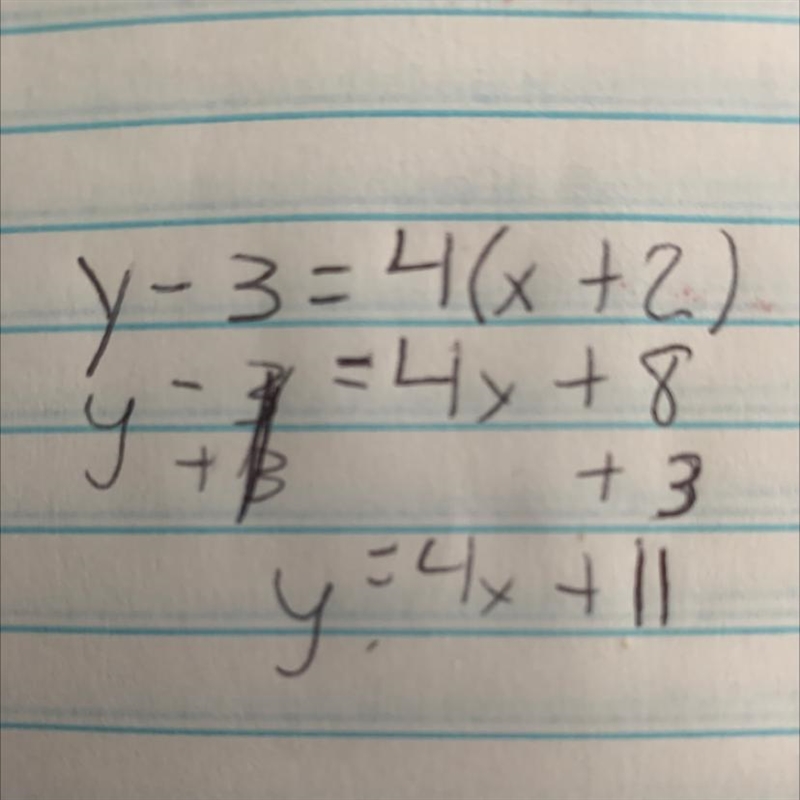 y - 3 = 4(x + 2)
y - 3 = 4x + 8
+ 3 + 3
y = 4x + 11